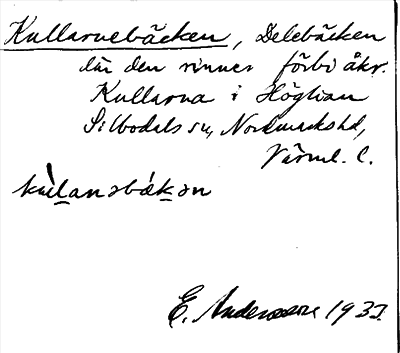 Kullarnebäcken, Delebäcken
där den rinner förbi åkr.
Kullarna i Höglian
Silbodals sn, Nordmarks hd,
Värml. l.
kùlanəbǽkən
E. Andersson 193